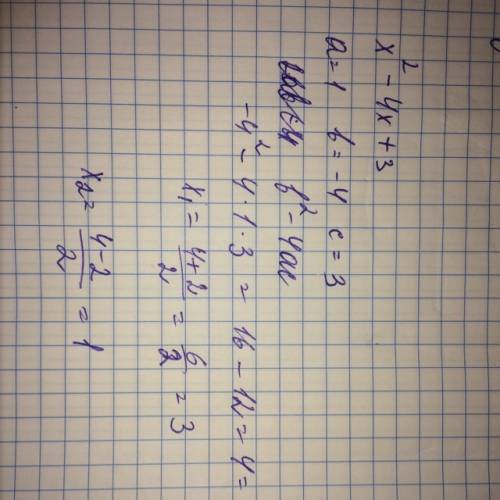 x² - 4x + 3
a=1 b=-4 c=3
b² - 4ac
-4² - 4·1·3 = 16 - 12 = 4 =
x₁ = (4+2)/2 = 6/2 = 3
x₂ = (4-2)/2 = 1